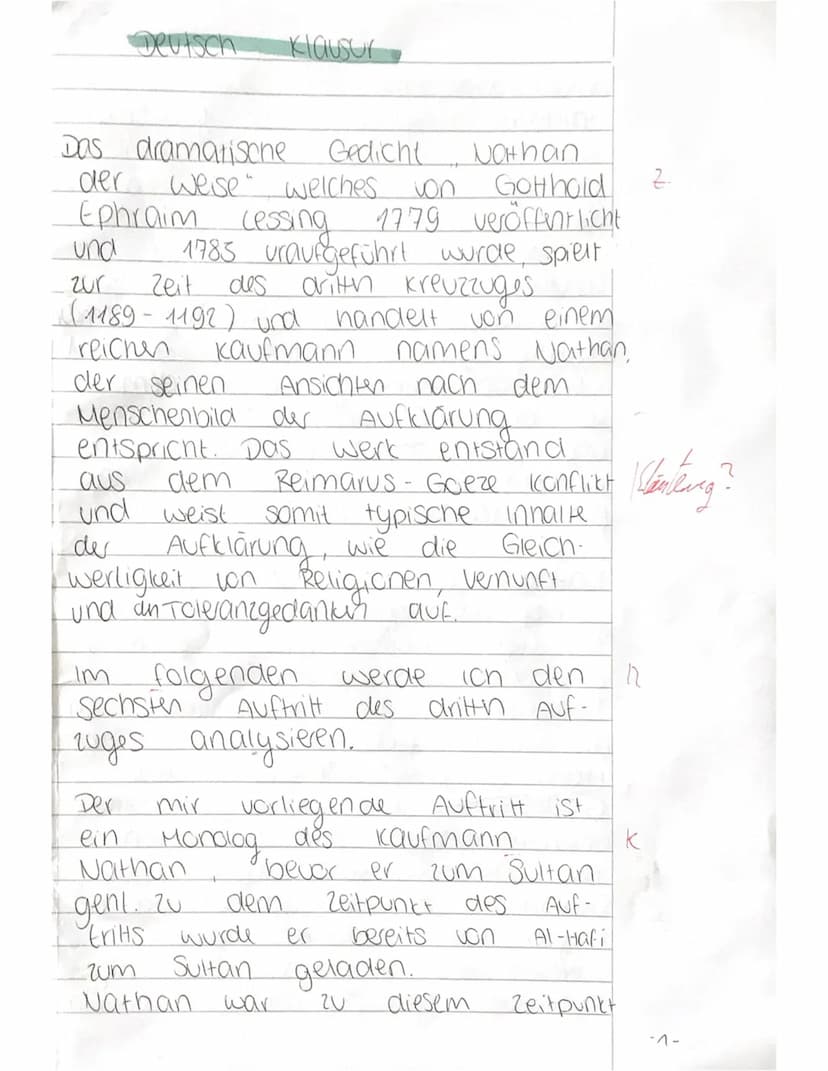 Deutsch Klausur
Das dramatische Gedicht „Nathan
der Weise" welches von Gotthold
Z
Ephraim Lessing 1779 veröffentlicht
und 1783 uraufgeführt wurde, spielt
zur Zeit des dritten Kreuzzuges
(1189-1192) und handelt von einem
reichen Kaufmann namens Nathan,
der seinen Ansichten nach dem
Menschenbild der Aufklärung
entspricht. Das Werk entstand
aus dem Reimarus-Goeze Konflikt
und weist somit typische Inhalte
der Aufklärung, wie die Gleich-
wertigkeit von Religionen, Vernunft
und den Toleranzgedanken auf.
Im folgenden werde ich den
sechsten Auftritt des dritten Auf-
zuges analysieren.
Der mir vorliegende Auftritt ist
ein Monolog des Kaufmann
K
Nathan, bevor er zum Sultan
geht. Zu dem Zeitpunkt des Auf-
tritts wurde er bereits von Al-Hafi
zum Sultan geladen.
Nathan war zu diesem Zeitpunkt
-1-